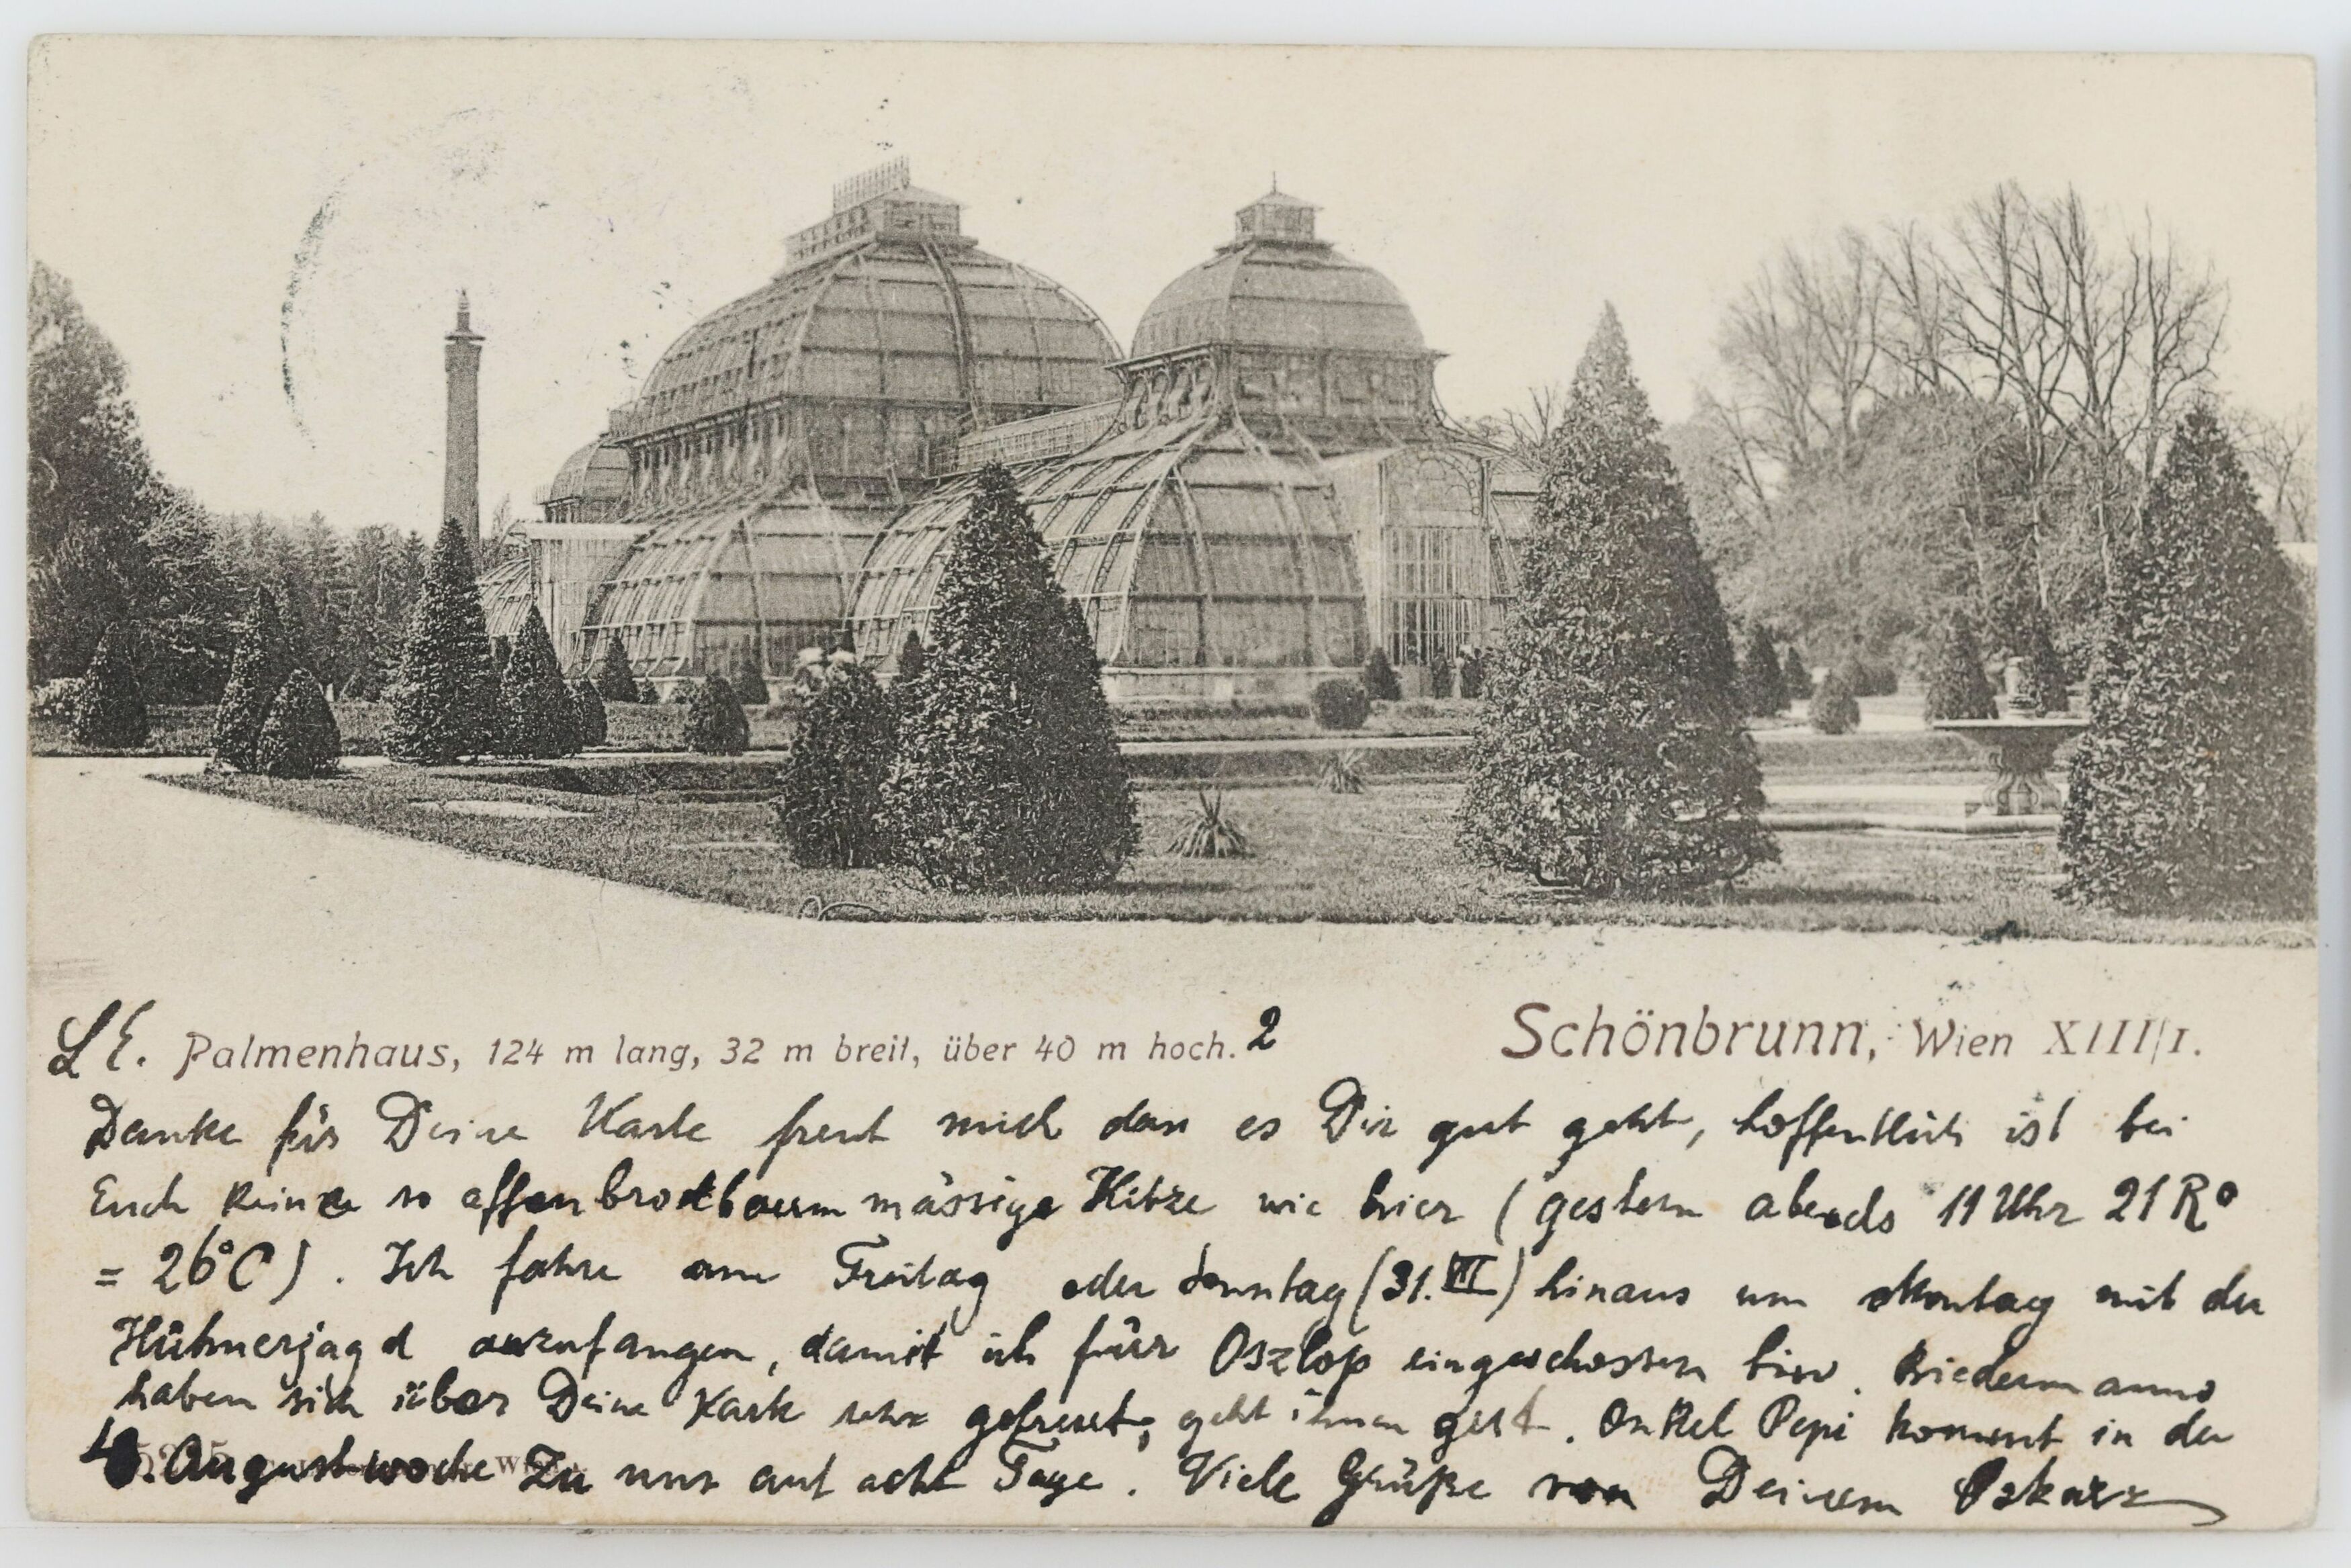 L E. Palmenhaus, 124 m lang, 32 m breit, über 40 m hoch. 2
Schönbrunn, Wien XIII/1.
Danke für Deine Karte freut mich dass es Dir gut geht, hoffentlich ist bei
Euch keine so affenbrodtbaummässige Hitze wie hier (gestern abends 11 Uhr 21 R°
= 26°C). Ich fahre am Freitag oder Sonntag (31. VII) hinaus um Montag mit der
Hühnerjagd anzufangen, damit ich für Oszlop eingeschossen bin. Biedermanns
haben sich über Deine Karte sehr gefreut, geht ihnen gut. Onkel Pepi kommt in der
Augustwoche zu uns auf acht Tage. Viele Grüße von Deinem Oskar